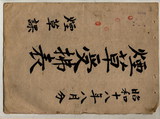 昭和十八年八月分
煙草受拂表
煙草課